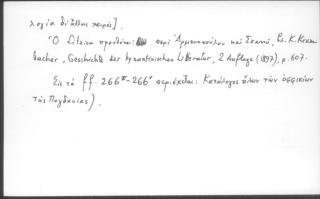 λογία δι' ἄλλης χειρός].
Ὁ Σίτζικα προσθέτει: περὶ Ἀρμενοπούλου καὶ Σκανῶ, Πρ. K. Krum-
bacher, Geschichte der byzantinischen Litteratur, 2 Auflage (1897), p. 607.
Εἰς τὰ ff. 266ʳ-266ᵛ περιέχεται: Κατάλογος ὅλων τῶν ὀφφικίων
τῆς Μπογδανίας).